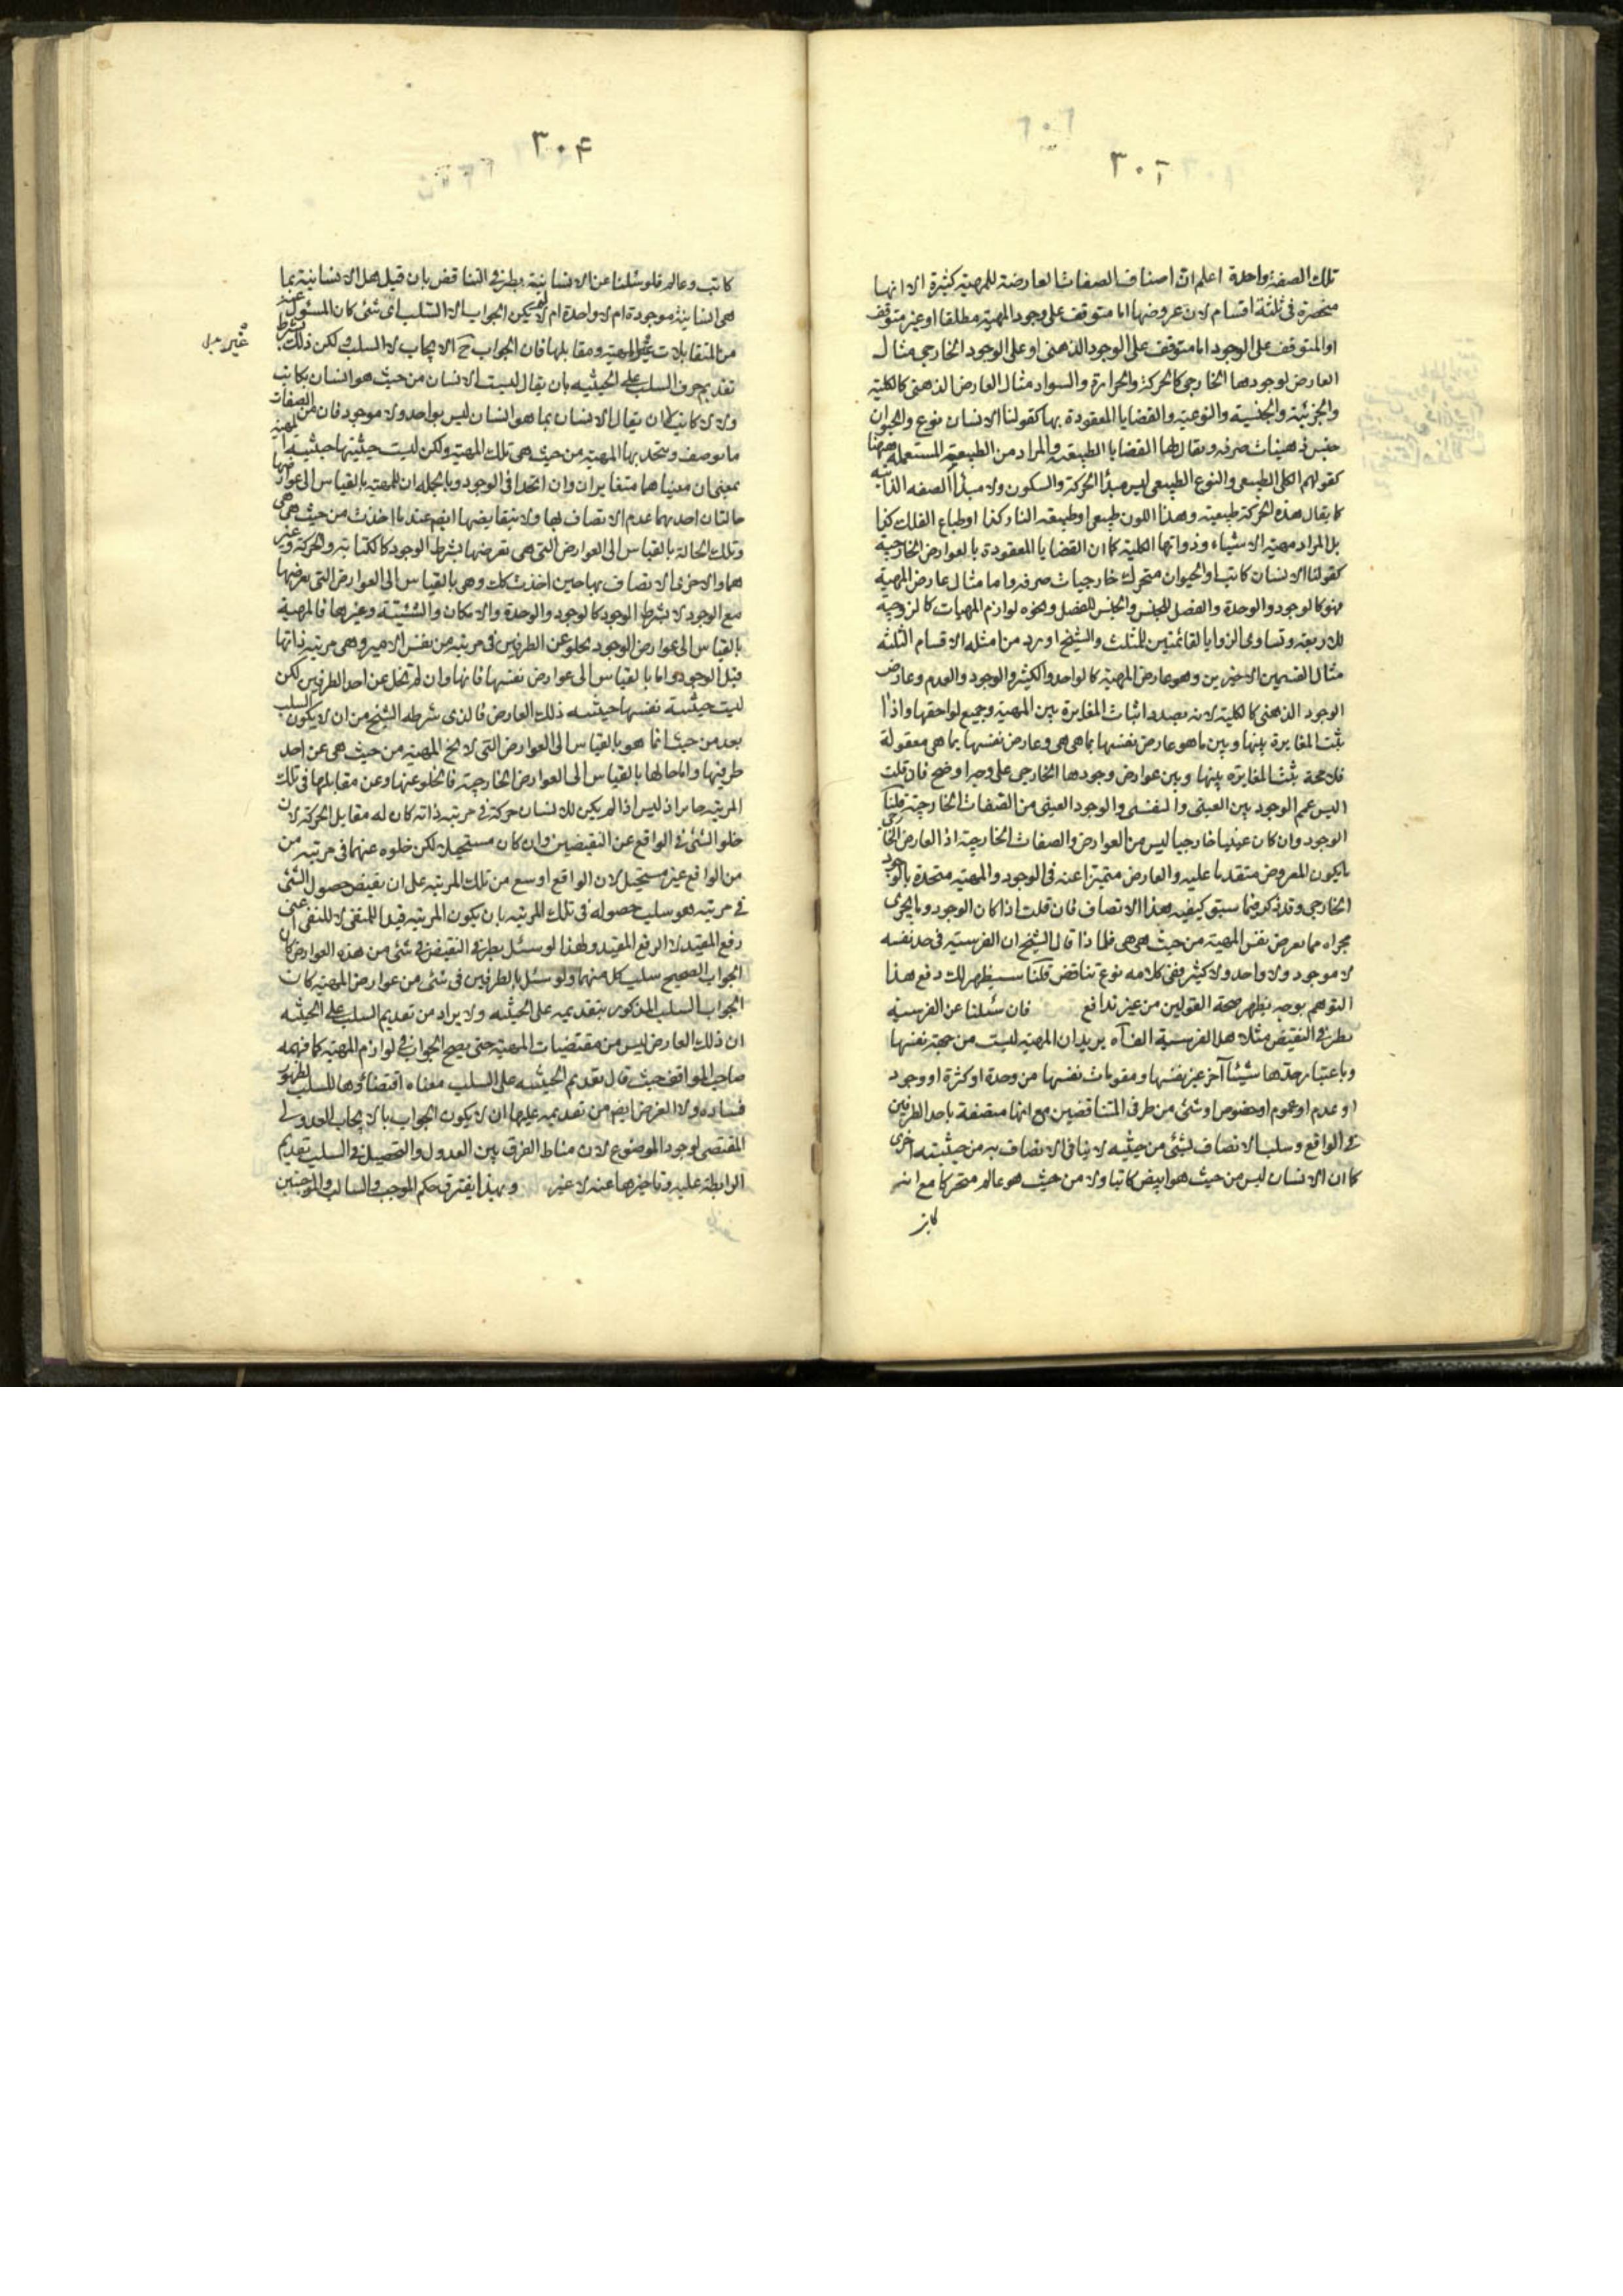 ٣٠٢
تلك الصفة واحدة اعلم ان اصناف الصفات العارضة للمهية كثيرة الا انها
منحصرة فى ثلثة اقسام لان عروضها اما متوقف على وجود المهية مطلقا او غير متوقف
او المتوقف على الوجود اما متوقف على الوجود الذهنى او على الوجود الخارجى مثال
العارض لوجودها الخارجى كالحركة والحرارة والسواد مثال العارض الذهنى كالكلية
والجزئية والجنسية والنوعية والقضايا المعقودة بها كقولنا الانسان نوع والحيوان
جنس ذهنيات صرفه ويقال لها القضايا الطبيعة والمراد من الطبيعة المستعملة ههنا
كقولهم الكلى الطبيعى والنوع الطبيعى ليس مبدأ الحركة والسكون ولا مبدأ الصفه الذاتيه
كما يقال هذه الحركة طبيعية وهذا اللون طبيعى او طبيعة النار كذا او طباع الفلك كذا
بل المراد مهية الاشياء وذواتها الكلية كما ان القضايا المعقودة بالعوارض الخارجية
كقولنا الانسان كاتب او الحيوان متحرك خارجيات صرفه واما مثال عارض المهية
فهو كالوجود والوحدة والفصل للجنس والجنس للفصل ونحوه لوازم المهيات كالزوجية
للاربعة وتساوى الزوايا القائمتين للمثلث والشيخ اورد من امثله الاقسام الثلثه
مثال القسمين الاخيرين وهو عارض المهية كالواحد والكثير والوجود والعدم وعارض
الوجود الذهنى كالكلية لانه بصدد اثبات المغايرة بين المهية وجميع لواحقها واذا
ثبت المغايرة بينها وبين ما هو عارض نفسها بما هى هى وعارض نفسها بما هى معقولة
فلا محة يثبت المغايره بينها وبين عوارض وجودها الخارجى على وجه اوضح فان قلت
اليس عمم الوجود بين العينى والنفسى والوجود العينى من الصفات الخارجية قلنا
الوجود وان كان عينيا خارجيا ليس من العوارض والصفات الخارجية اذ العارض الخارجى
ما يكون المعروض متقدما عليه والعارض متميزا عنه فى الوجود والمهيه متحدة بالوجود
الخارجى وقد ذكر فيما سبق كيفيه هذا الاتصاف فان قلت اذا كان الوجود وما يجرى
مجراه مما يعرض نفس المهية من حيث هى هى فلما ذا قال الشيخ ان الفرسيته فى حد نفسه
لا موجود ولا واحد ولا كثير ففى كلامه نوع تناقض قلنا سيظهر لك دفع هذا
التوهم بوجه يظهر صحة القولين من غير تدافع فان سئلنا عن الفرسية
بطرفى النقيض مثلا هل الفرسية الف اه يريد ان المهية ليست من جهة نفسها
وباعتبار حدها شيئا آخر غير نفسها ومقومات نفسها من وحدة او كثرة او وجود
او عدم او عموم او خصوص او شئ من طرفى المتناقضين مع انها متصفة باحد الطرفين
فى الواقع وسلب الاتصاف لشئ من حيثيه لا ينافى الاتصاف به من حيثيته اخرى
كما ان الانسان ليس من حيث هو ابيض كاتبا ولا من حيث هو عالم متحركا مع انه
كاتب
٣٠٤
كاتب وعالم فلو سئلنا عن الانسانية بطرفى التناقض بان قيل هل الانسانية بما
هى انسانية موجودة ام لا واحدة ام لا لم يكن الجواب الا السلب اى شئ كان المسئول عنه
من المتقابلات غير المهية ومقابلها فان الجواب ح الايجاب لا السلب ولكن ذلك بشرط
غير بدل
تقديم حرف السلب على الحيثيه بان يقال ليست الانسان من حيث هو انسان بكاتب
ولا لا كاتب كما ان يقال الانسان بما هو انسان ليس بواحد ولا موجود فان من الصفات
ما يوصف ويتحد بها المهية من حيث هى تلك المهية ولكن ليست حيثيتها حيثية المهية
بمعنى ان معنياهما متغايران وان اتحدا فى الوجود وبالجمله ان للمهية بالقياس الى عوارضها
حالتان احديهما عدم الاتصاف لها ولا بنقايضها ايضم عند ما اخذت من حيث هى هى
وتلك الحالة بالقياس الى العوارض التى هى تعرضها بشرط الوجود كالكتابة والحركة وغير
هما والاخرى الاتصاف بها حين اخذت كك وهى بالقياس الى العوارض التى يعرضها
مع الوجود لا بشرط الوجود كالوجود والوحدة والامكان والشيئية وغيرها فالمهية
بالقياس الى عوارض الوجود يخلو عن الطرفين فى مرتبه من نفس الامر وهى مرتبه ذاتها
قبل الوجود واما بالقياس الى عوارض نفسها فانها وان لم تخل عن احد الطرفين لكن
ليست حيثية نفسها حيثيه ذلك العارض فالذى شرطه الشيخ من ان لا يكون السلب
بعد من حيث انما هو بالقياس الى العوارض التى لا تخ المهية من حيث هى عن احد
طرفيها واما حالها بالقياس الى العوارض الخارجية فالخلو عنها وعن مقابلها فى تلك
المرتبه جايز اذ ليس اذا لم يكن للانسان حركة فى مرتبه ذاته كان له مقابل الحركة لان
خلو الشئ فى الواقع عن النقيضين وان كان مستحيلا لكن خلوه عنهما فى مرتبه من
من الواقع غير مستحيل لان الواقع اوسع من تلك المرتبه على ان نقيض حصول الشئ
فى مرتبه هو سلب حصوله فى تلك المرتبه بان يكون المرتبه قيدا للمنفى لا للنفى اعنى
رفع المقيد لا الرفع المقيد ولهذا لو سئل بطرفى النقيض فى شئ من هذه العوارض كان
الجواب الصحيح سلب كل منهما ولو سئل بالطرفين فى شئ من عوارض المهية كان
الجواب السلب المذكور بتقديمه على الحيثيه ولا يراد من تقديم السلب على الحيثيه
ان ذلك العارض ليس من مقتضيات المهية حتى يصح الجواب فى لوازم المهية كما فهمه
صاحب المواقف حيث قال تقديم الحيثيه على السلب معناه اقتضاؤها للسلب لظهور
فساده ولا الغرض ايضم من تقديمه عليها ان لا يكون الجواب بالايجاب العدولى
المقتضى لوجود الموضوع لان مناط الفرق بين العدول والتحصيل فى السلب تقديم
الرابطه عليه وتاخيرها عنه لا غير وبهذا يفترق حكم الموجب والسالب والموجبتين